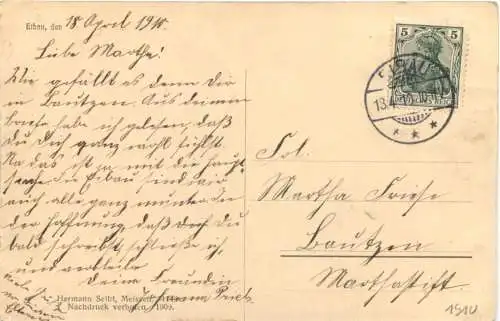 Eibau, den 18. April 1910.
Liebe Martha!
Wie gefällt es denn dir
in Bautzen. Aus deinem
Briefe habe ich gelesen, daß
du dich ganz wohl fühlst.
Na das ist ja mit die Haupt-
sache. In Eibau sind wir
auch alle ganz munter. In
der Hoffnung, daß du
bald schreibst, schließe ich,
und verbleibe
deine Freundin
Hermann Seibt, Meissen
Nachdruck verboten. 1909.
5 5
DEUTSCHES REICH
EIBAU
Frl.
Martha Friese
Bautzen
Marthastift.
1910